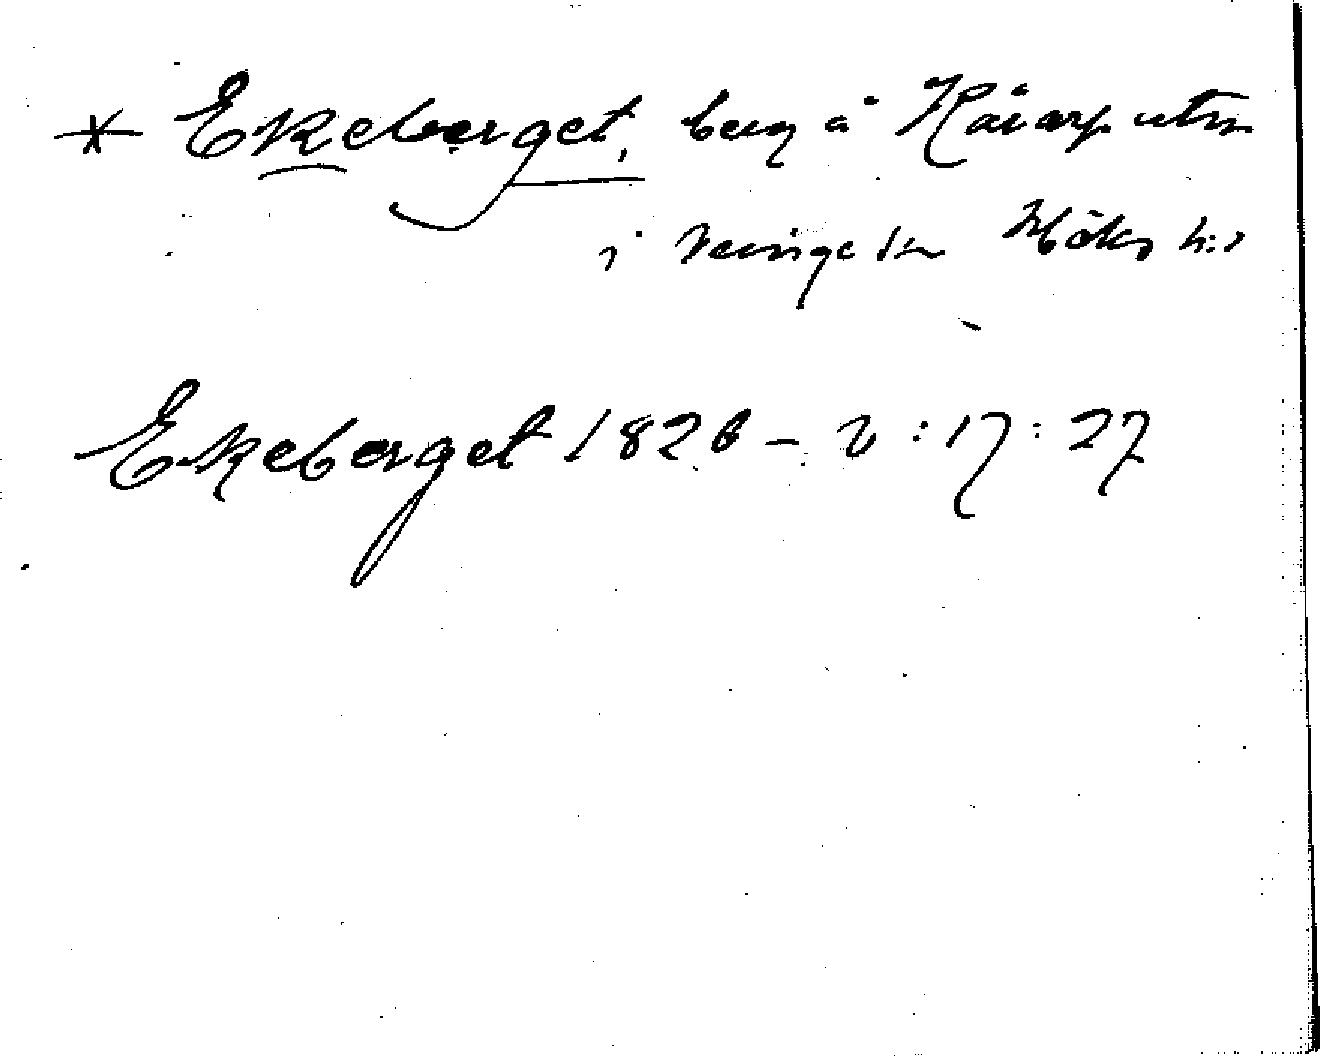 * Ekeberget, berg å Kåarp utm
i Veinge sn Höks hd
Ekeberget 1826 – V:17:27